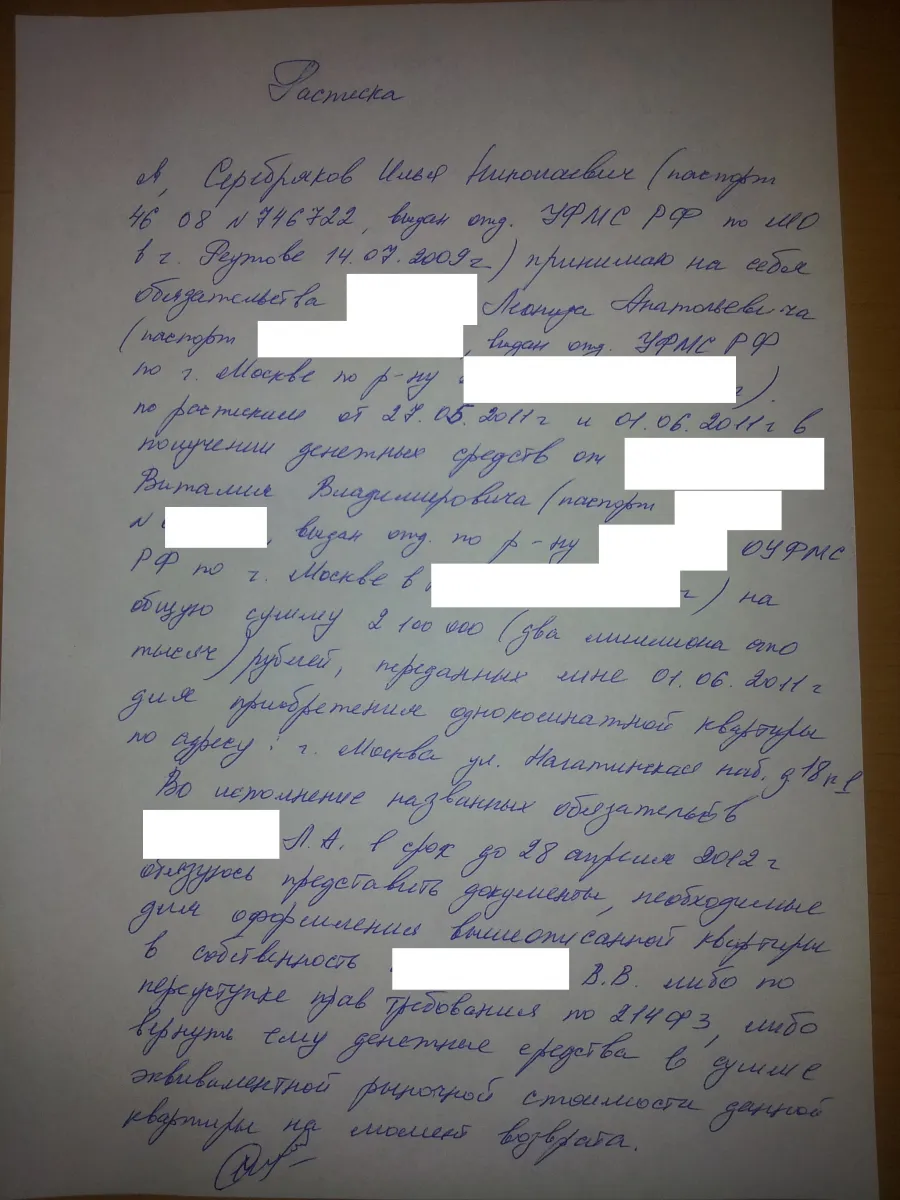 Расписка
Я, Серебряков Илья Николаевич (паспорт
46 08 N 746722, выдан отд. УФМС РФ по МО
в г. Реутове 14.07.2009г.) принимаю на себя
обязательства Анатольевича
(паспорт , выдан отд. УФМС РФ
по г. Москве по р-ну г).
по распискам от 27.05.2011г и 01.06.2011г в
получении денежных средств от
Виталия Владимировича (паспорт
N , выдан отд. по р-ну ОУФМС
РФ по г. Москве в г) на
общую сумму 2 100 000 (два миллиона сто
тысяч) рублей, переданных мне 01.06.2011г
для приобретения однокомнатной квартиры
по адресу: г. Москва ул. Нагатинская наб. д 18
Во исполнение названных обязательств
Л.А. в срок до 28 апреля 2012г
обязуюсь представить документы, необходимые
для оформления вышеописанной квартиры
в собственность В.В. либо по
переуступке прав требования по 214ФЗ, либо
вернуть ему денежные средства в сумме
эквивалентной рыночной стоимости данной
квартиры на момент возврата.